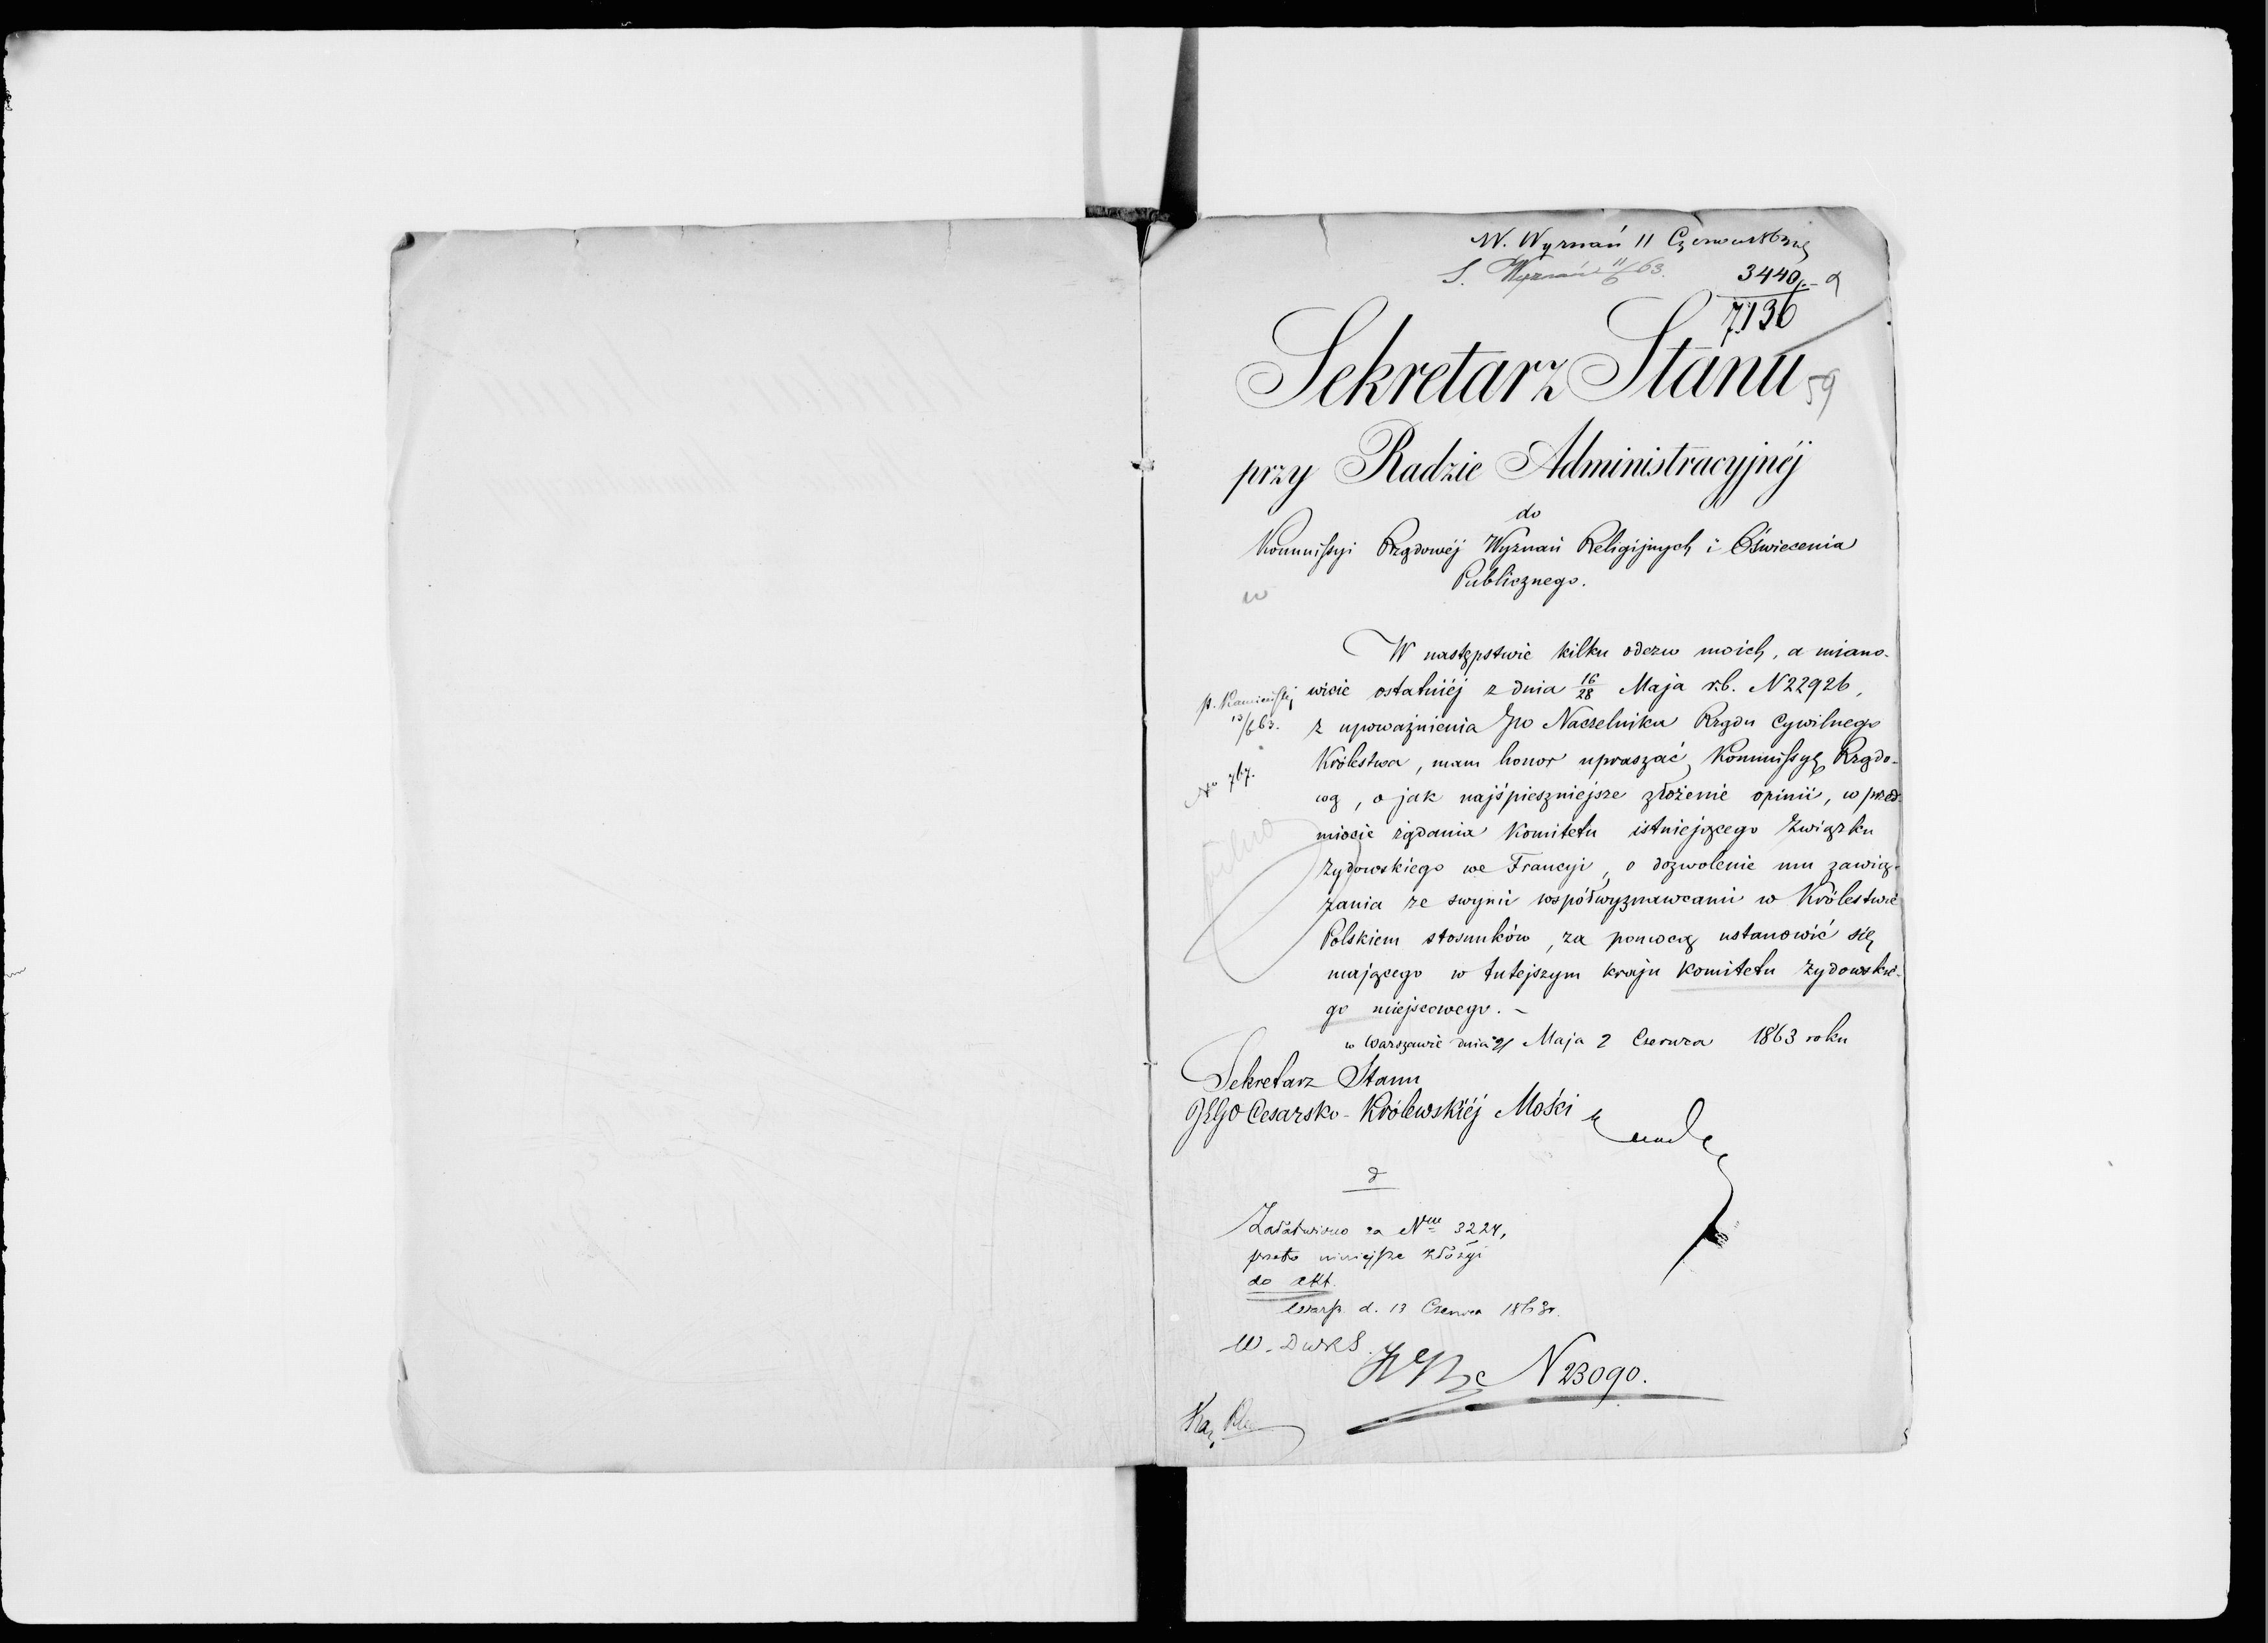 W. Wyznań 11 Czerwca 1863
S. Wyznań 11/6 63.
3440
7136
Sekretarz Stanu
59
przy Radzie Administracyjnéj
do
Kommissyi Rządowéj Wyznań Religijnych i Oświecenia
Publicznego.
W następstwie kilku odezw moich, a miano-
wicie ostatniéj z dnia 16/28 Maja r.b. N 22926,
z upoważnienia Jgo Naczelnika Rządu Cywilnego
Królestwa, mam honor upraszać Kommissyę Rządo-
wą, o jak najśpieszniejsze złożenie opinii, w przed-
miocie żądania Komitetu istniejącego Związku
Żydowskiego we Francyi, o dozwolenie mu zawią-
zania ze swymi współwyznawcami w Królestwie
Polskiem stosunków, za pomocą ustanowić się
mającego w tutejszym kraju Komitetu żydowskie-
go miejscowego. -
w Warszawie dnia 21 Maja 2 Czerwca 1863 roku
p. Kamieński
13/6 63.
No 767.
pilno
Sekretarz Stanu
JEGO Cesarsko-Królewskiéj Mości
d
Załatwiono za Nrem 3224,
przeto niniejsze złożyć
do akt.
Warsz. d. 13 Czerwca 1863r.
N 23090.